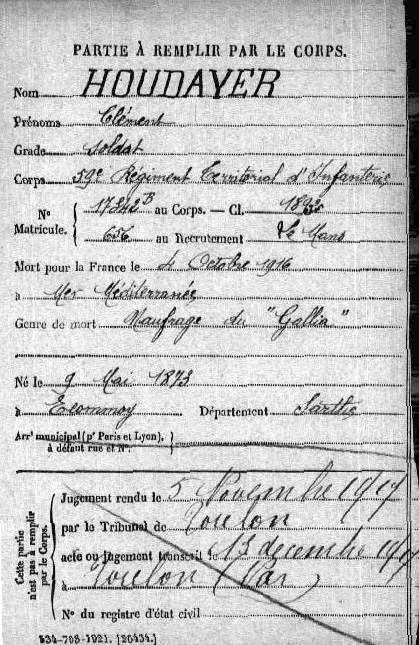 PARTIE À REMPLIR PAR LE CORPS.
Nom HOUDAYER
Prénoms Clément
Grade Soldat
Corps 59e Régiment Territorial d'Infanterie
Nº Matricule. { 17342B au Corps. — Cl. 1893
656 au Recrutement Le Mans
Mort pour la France le 4 Octobre 1916
à Mer Méditerranée
Genre de mort Naufrage du "Gallia"
Né le 9 Mai 1873
à Ecommoy Département Sarthe
Arr' municipal (p' Paris et Lyon), à défaut rue et Nº. }
Cette partie n'est pas à remplir par le Corps.
Jugement rendu le 5 Novembre 1917
par le Tribunal de Toulon
acte ou jugement transcrit le 13 decembre 1917
à Toulon (Var)
Nº du registre d'état civil
534-708-1921. [26434.]